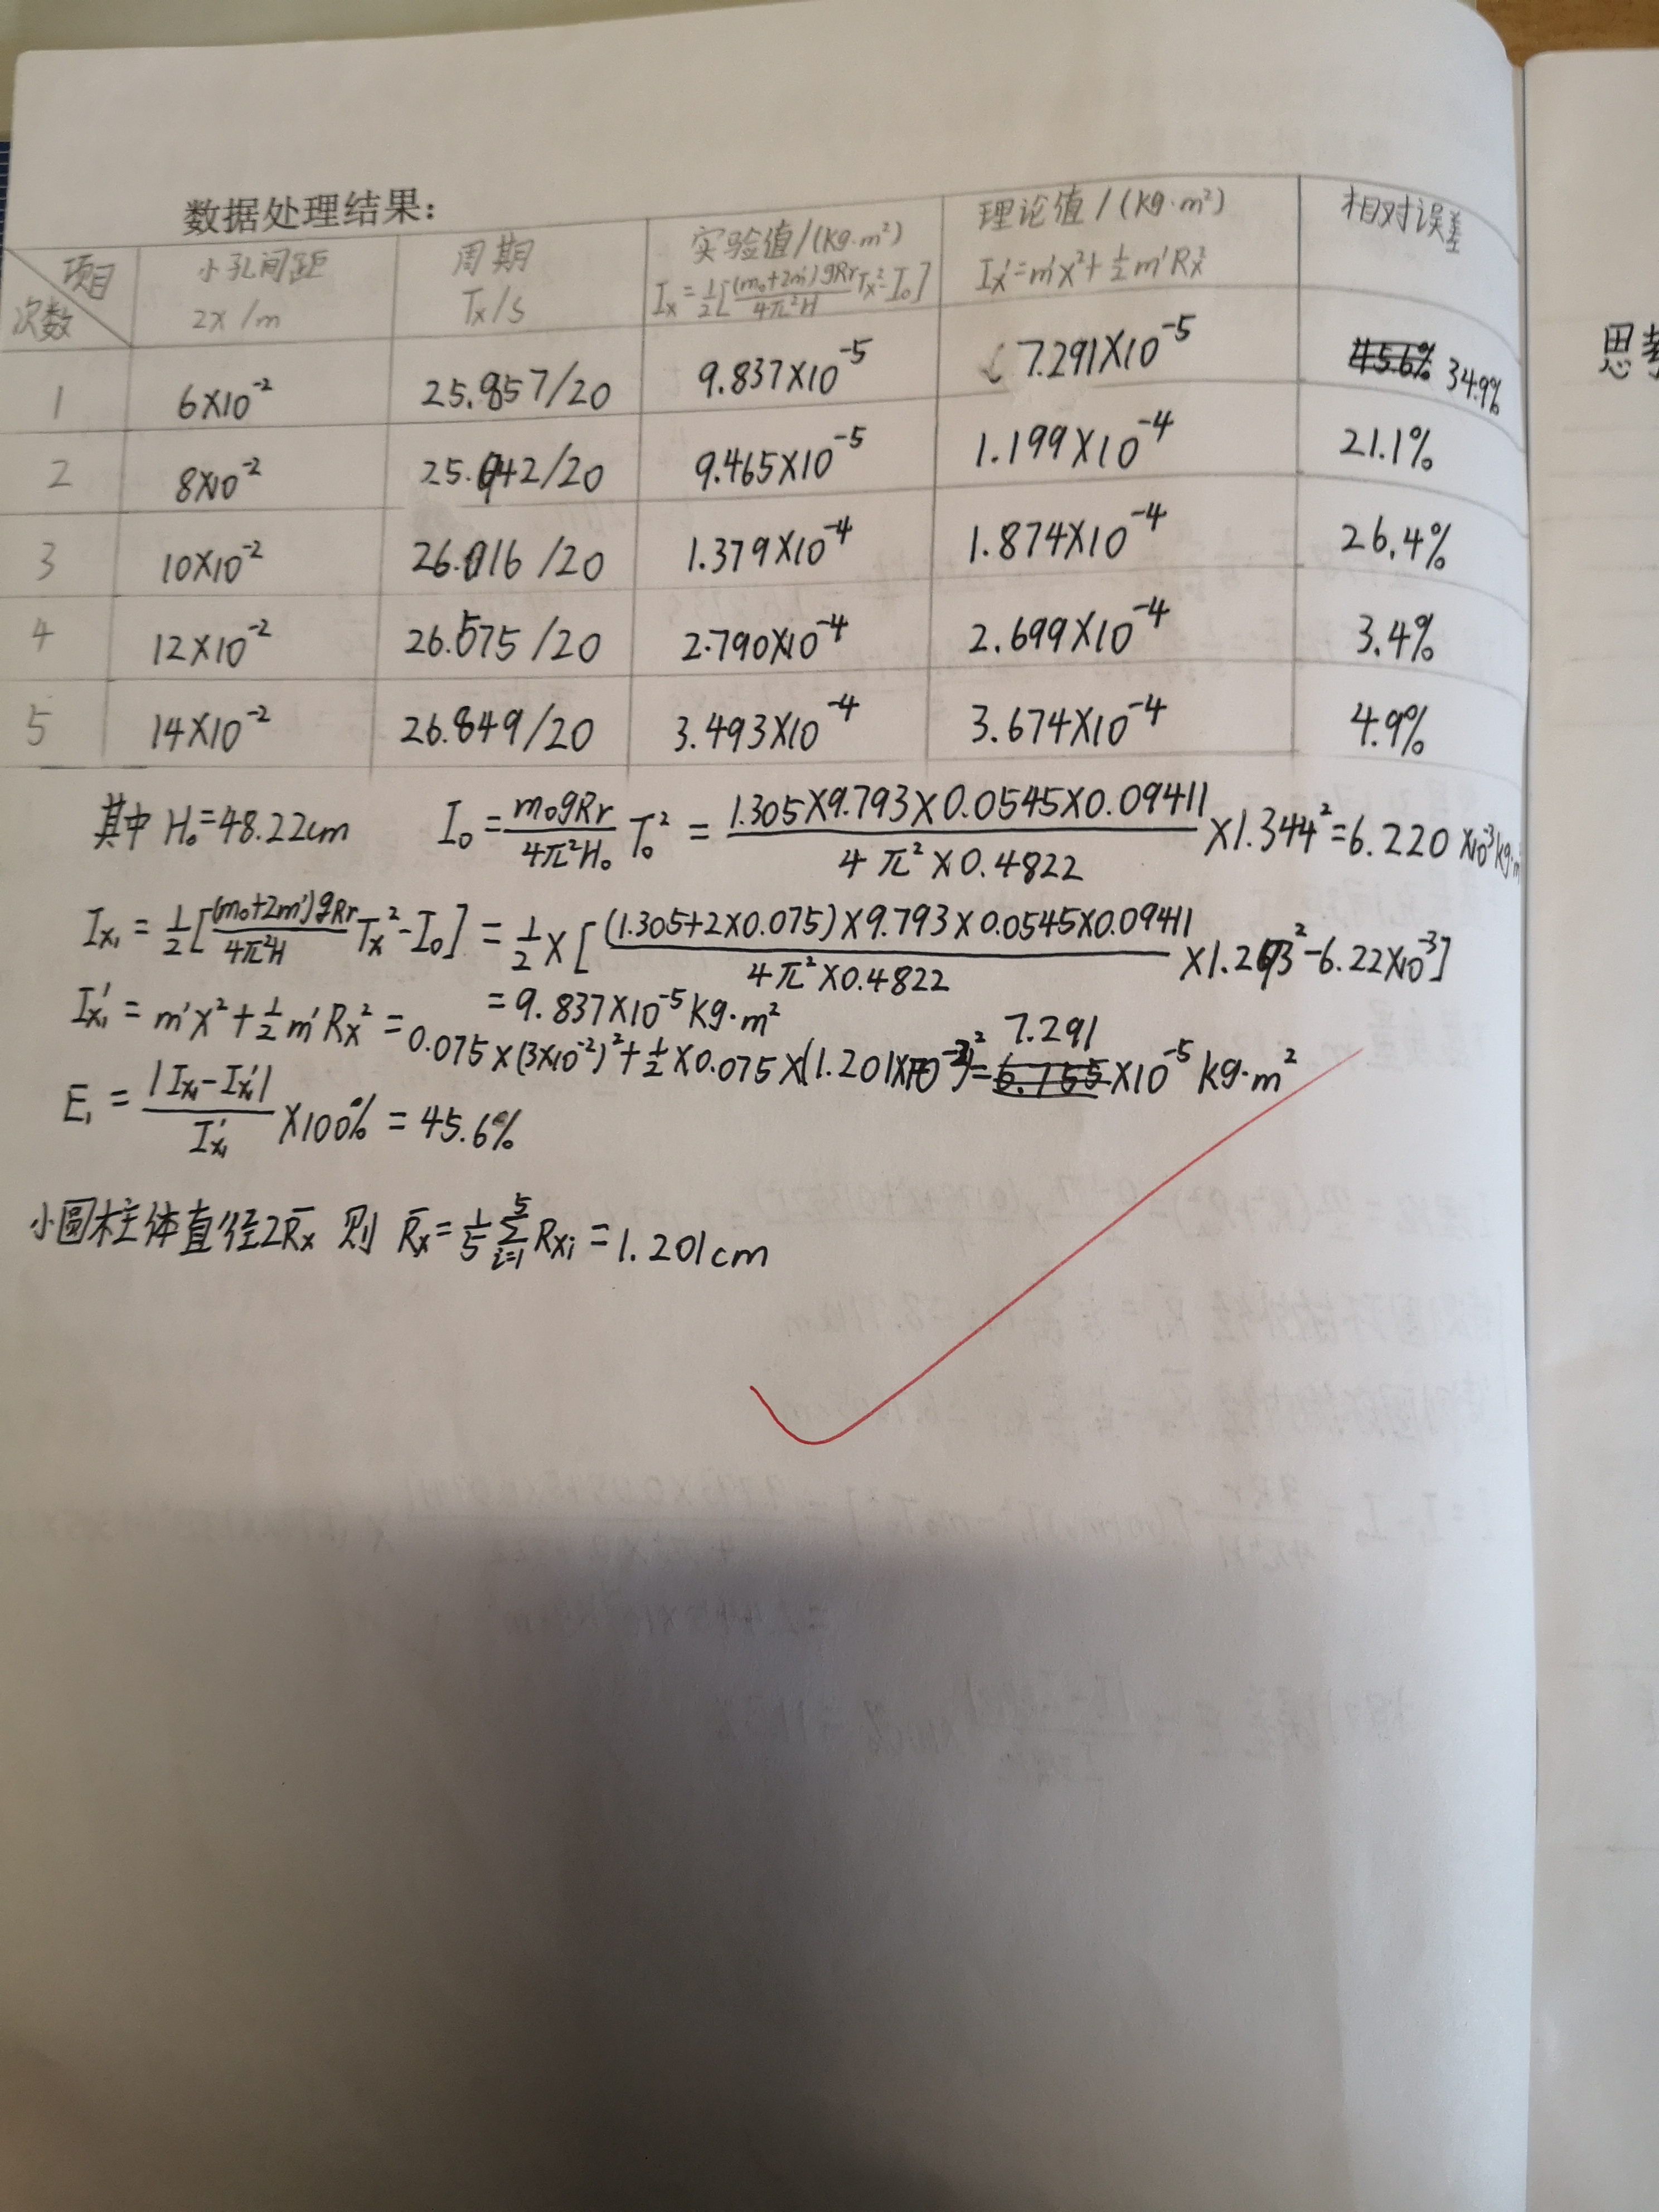 数据处理结果:
项目 次数 小孔间距 2X/m 周期 Tx/s 实验值/(Kg·m²) Ix=½[(m₀+2m')gRr/4π²H Tx²-I₀] 理论值/(Kg·m²) Ix'=m'x²+½m'Rx² 相对误差
1 6×10⁻² 25.857/20 9.837×10⁻⁵ 7.291×10⁻⁵ 34.9%
2 8×10⁻² 25.842/20 9.465×10⁻⁵ 1.199×10⁻⁴ 21.1%
3 10×10⁻² 26.016/20 1.379×10⁻⁴ 1.874×10⁻⁴ 26.4%
4 12×10⁻² 26.575/20 2.790×10⁻⁴ 2.699×10⁻⁴ 3.4%
5 14×10⁻² 26.849/20 3.493×10⁻⁴ 3.674×10⁻⁴ 4.9%
其中 H₀=48.22cm I₀=m₀gRr/4π²H₀ T₀²=1.305×9.793×0.0545×0.09411/4π²×0.4822×1.344²=6.220×10⁻³kg·m
Ix₁=½[(m₀+2m')gRr/4π²H Tx²-I₀]=½×[(1.305+2×0.075)×9.793×0.0545×0.09411/4π²×0.4822×1.293²-6.22×10⁻³]
=9.837×10⁻⁵Kg·m²
Ix₁'=m'x²+½m'Rx²=0.075×(3×10⁻²)²+½×0.075×(1.201×10⁻²)²=7.291×10⁻⁵kg·m²
E₁=|Ix₁-Ix₁'|/Ix₁'×100%=45.6%
小圆柱体直径2R̄x 则 R̄x=⅕∑⁵ᵢ₌₁Rxi=1.201cm
思